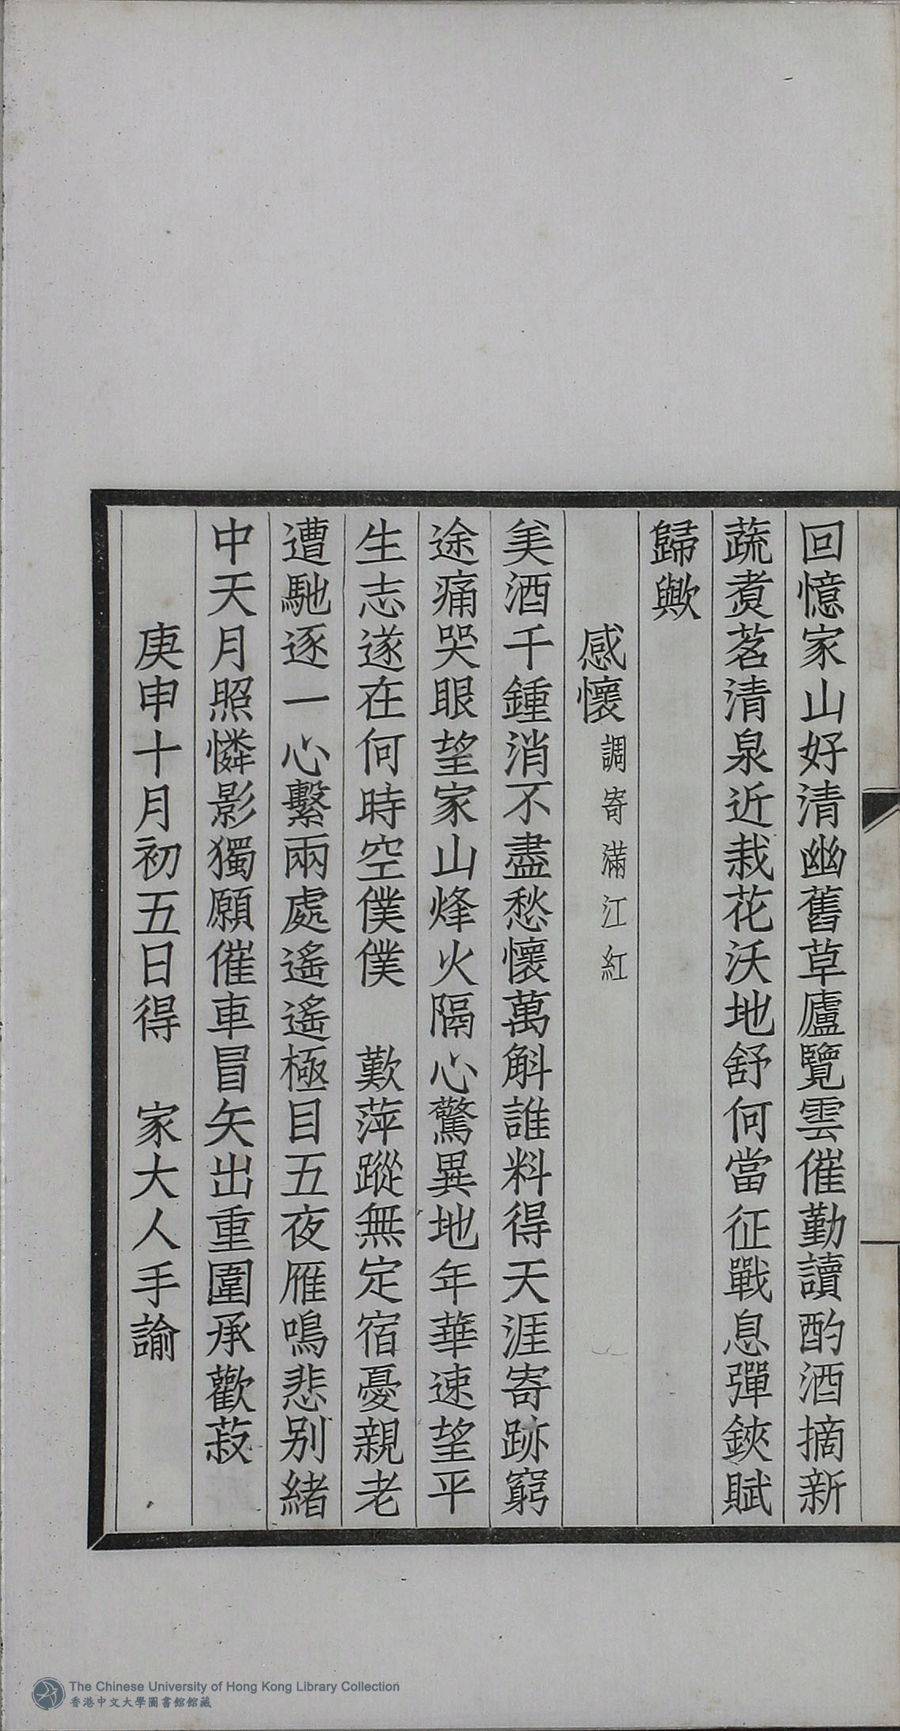 回憶家山好清幽舊草廬覽雲催勤讀酌酒摘新
蔬煑茗清泉近栽花沃地舒何當征戰息彈鋏賦
歸歟
感懷 調寄滿江紅
美酒千鍾消不盡愁懷萬斛誰料得天涯寄跡窮
途痛哭眼望家山烽火隔心驚異地年華速望平
生志遂在何時空僕僕　歎萍蹤無定宿憂親老
遭馳逐一心繫兩處遙遙極目五夜雁鳴悲別緒
中天月照憐影獨願催車冒矢出重圍承歡菽
庚申十月初五日得　家大人手諭
The Chinese University of Hong Kong Library Collection
香港中文大學圖書館館藏